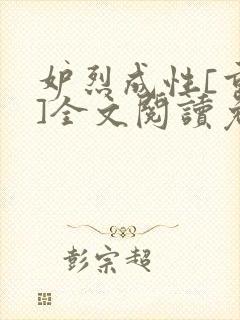 妒烈成性[重
]全文閱讀免
彭宗超